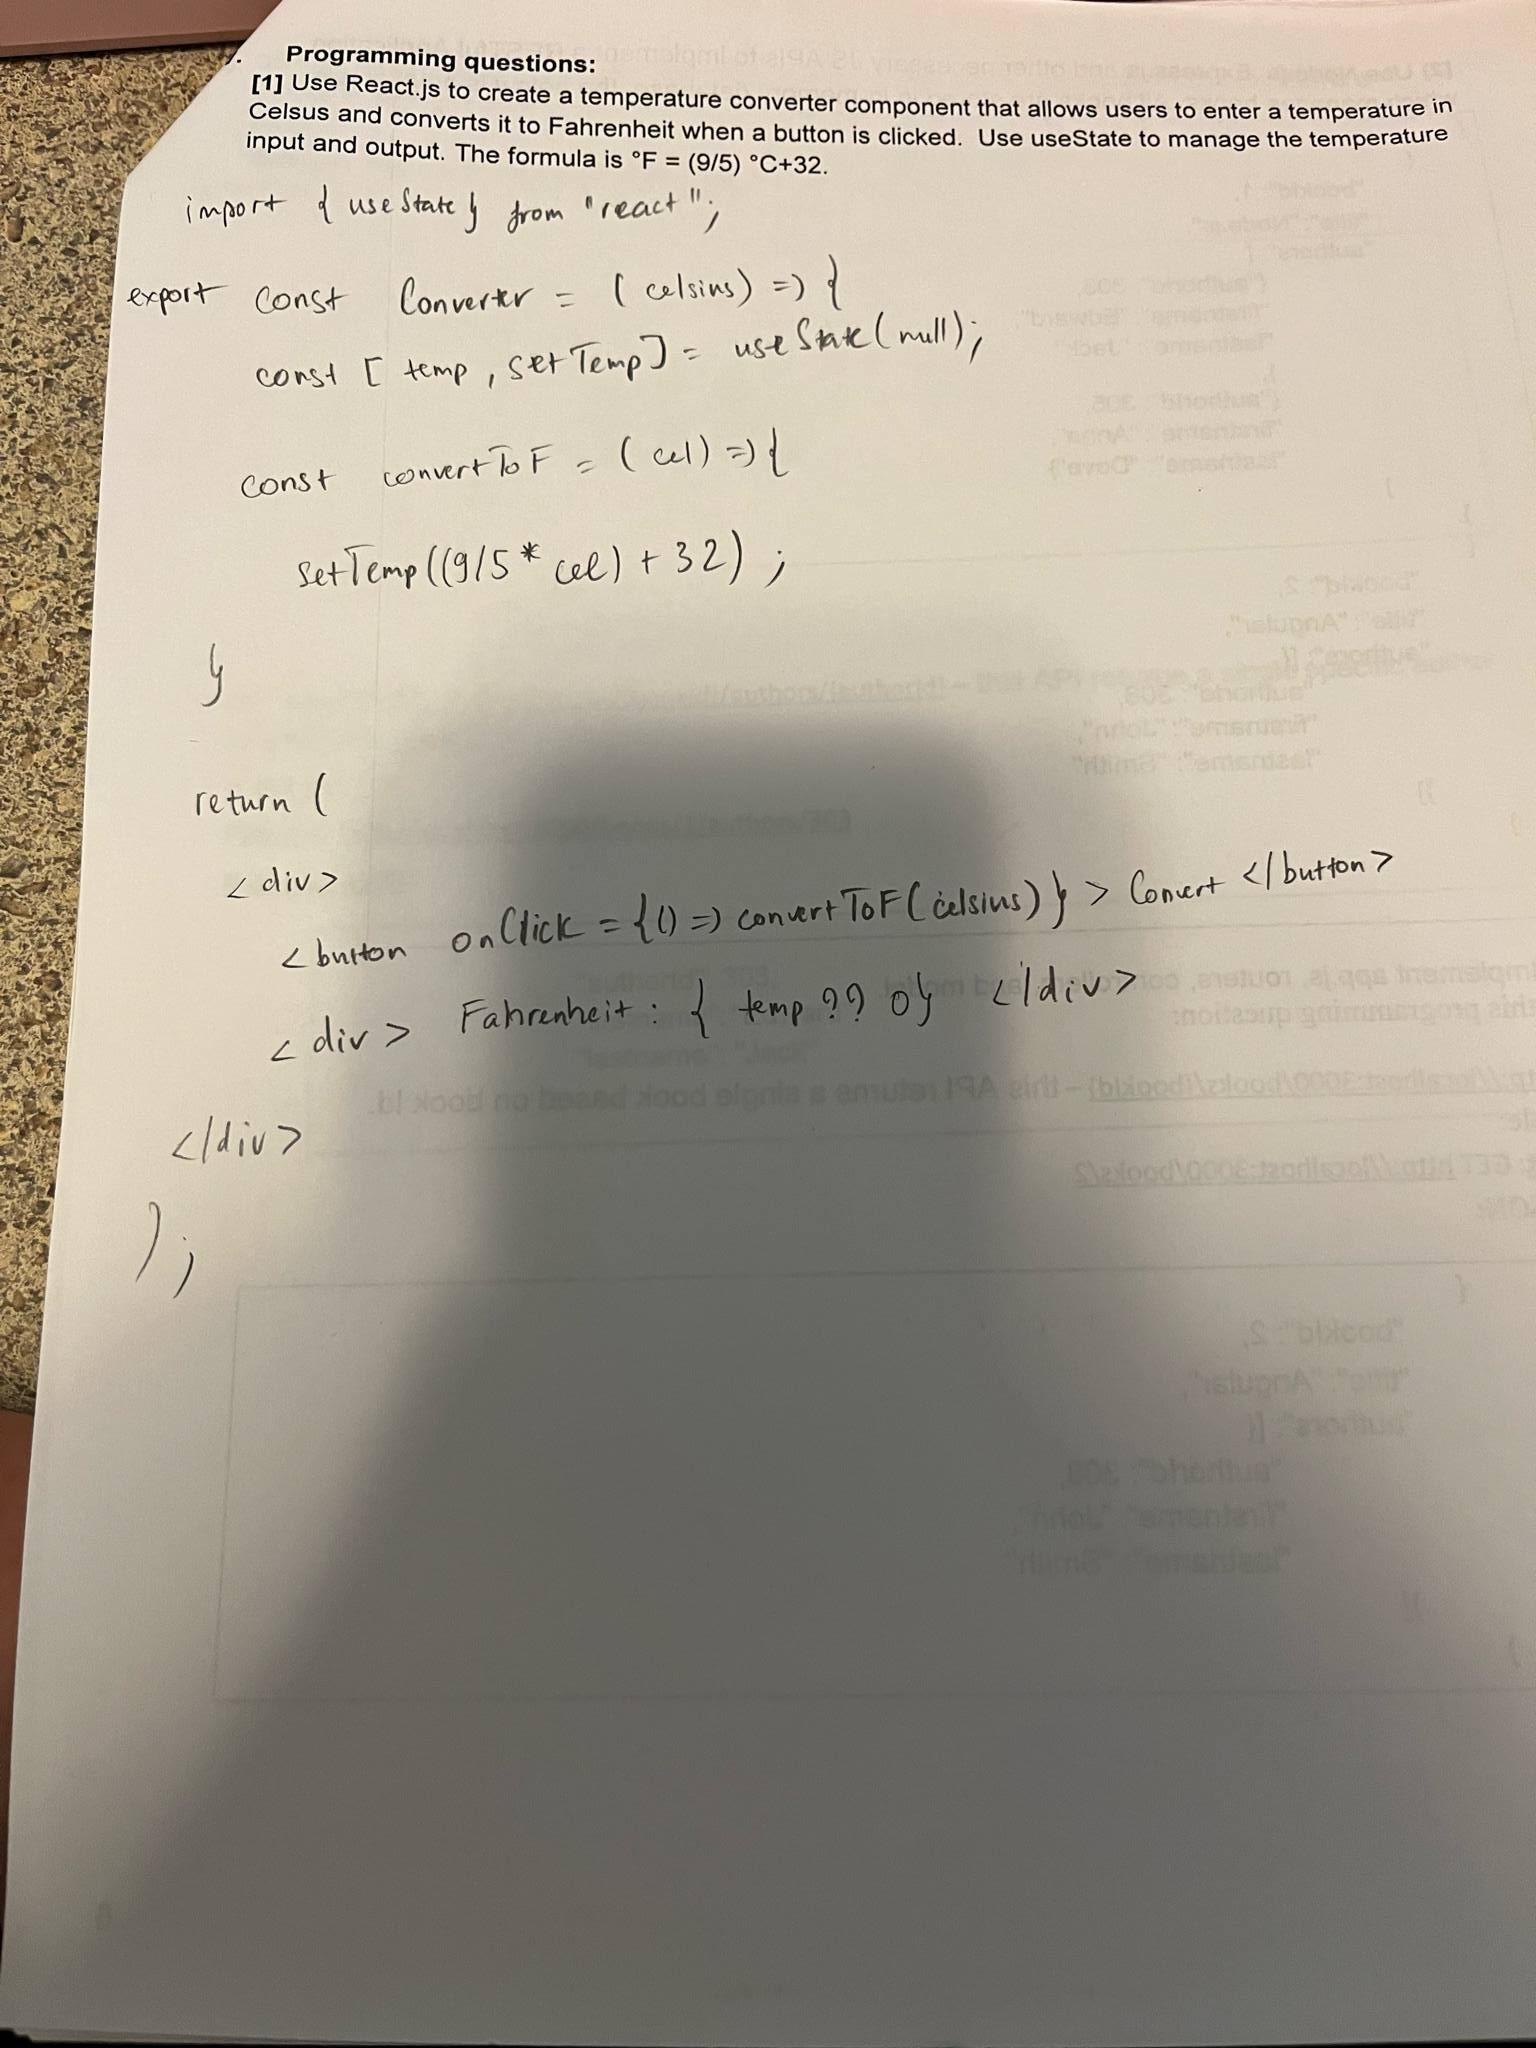 Programming questions:
[1] Use React.js to create a temperature converter component that allows users to enter a temperature in
Celsus and converts it to Fahrenheit when a button is clicked. Use useState to manage the temperature
input and output. The formula is °F = (9/5) °C+32.
import { useState } from "react";
export const Converter = (celsius) => {
const [temp, setTemp] = useState(null);
const convertToF = (cel) => {
setTemp((9/5 * cel) + 32);
}
return (
<div>
<button onClick = {() => convertToF(celsius)} > Convert </button>
<div> Fahrenheit: { temp ?? 0} </div>
</div>
);